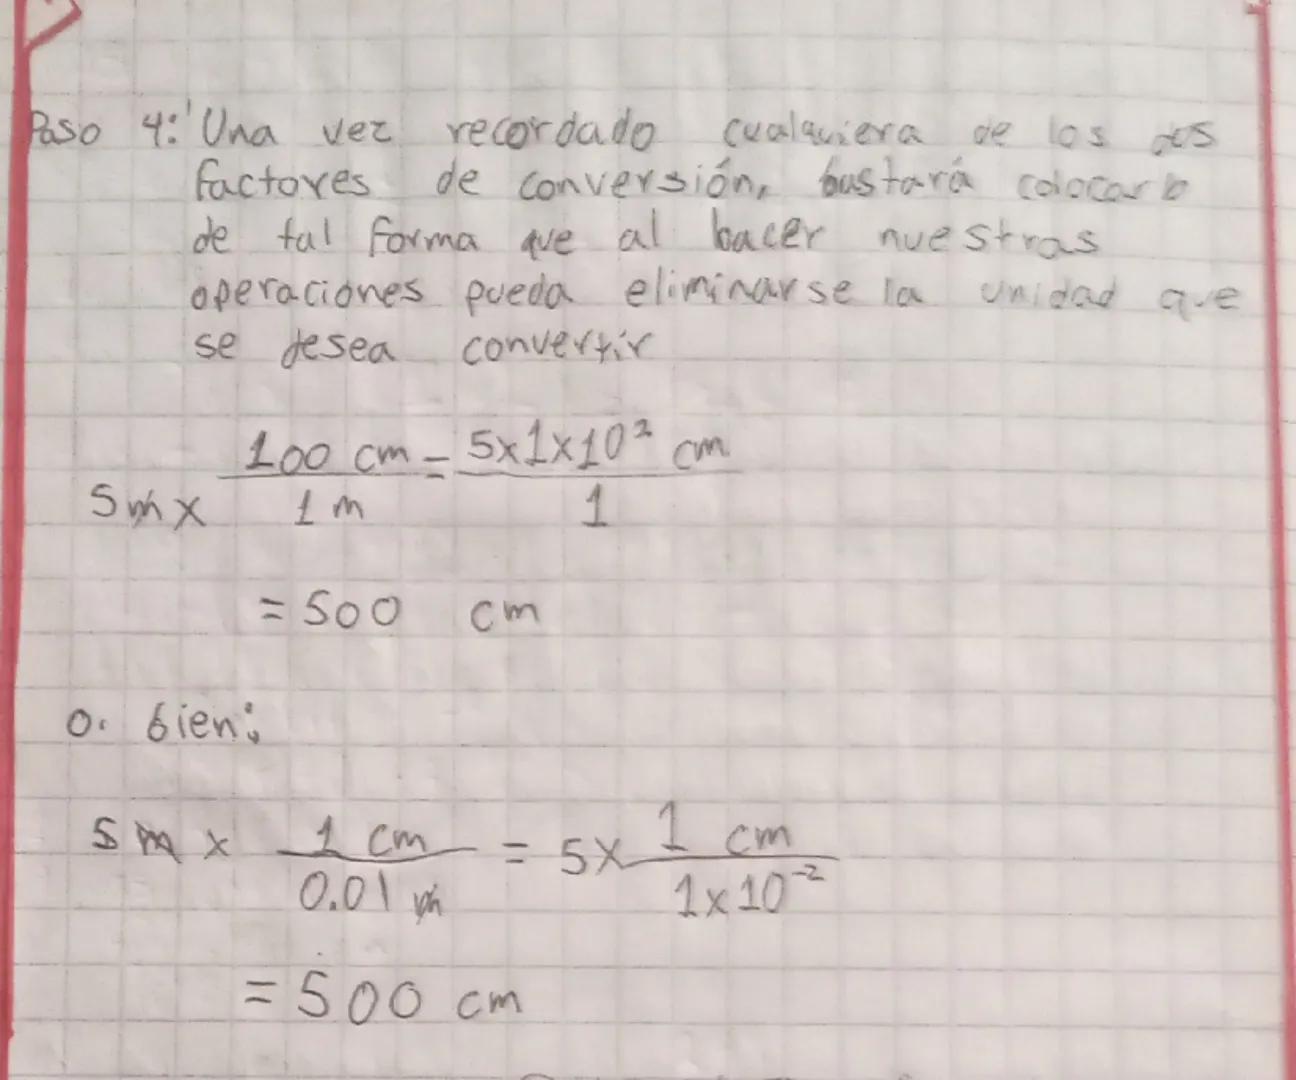 Paso 4: Una vez recordado cualquiera de los dos
factores de conversión, bastará colocarlo
de tal forma que al hacer nuestras
operaciones pueda eliminarse la unidad que
se desea convertir
5 m x 100 cm / 1 m = 5x1x10² cm / 1
= 500 cm
o. bien:
5 m x 1 cm / 0.01 m = 5x 1 cm / 1x10⁻²
= 500 cm